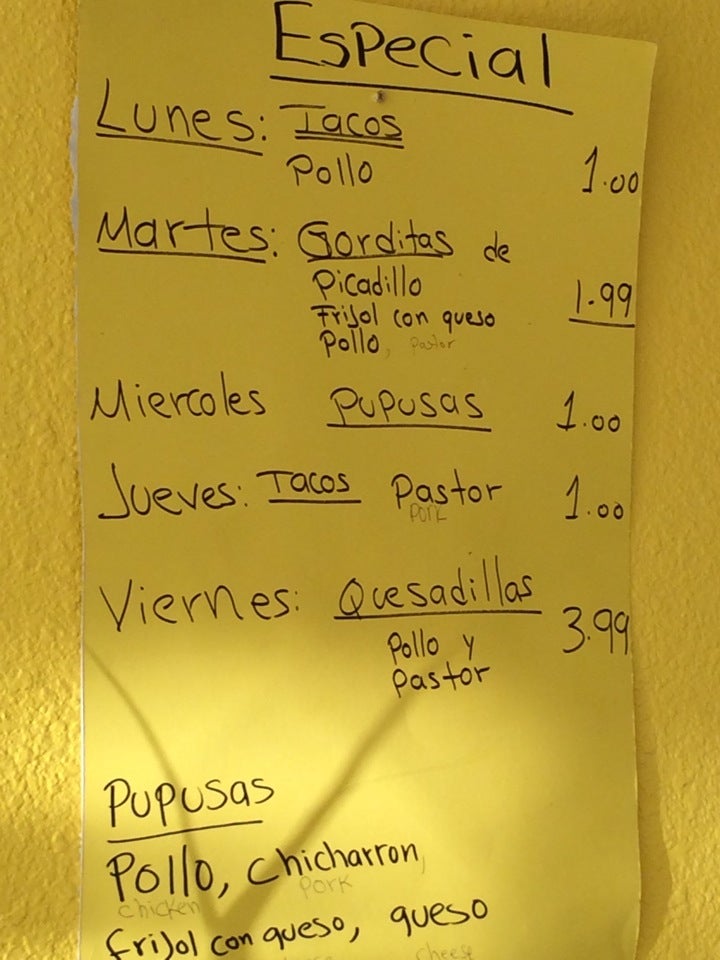 Especial
Lunes: Tacos
Pollo 1.00
Martes: Gorditas de
Picadillo
Frijol con queso 1.99
Pollo, Pastor
Miercoles Pupusas 1.00
Jueves: Tacos Pastor 1.00
Pork
Viernes: Quesadillas
Pollo y 3.99
Pastor
Pupusas
Pollo, chicharron,
chicken pork
frijol con queso, queso
cheese